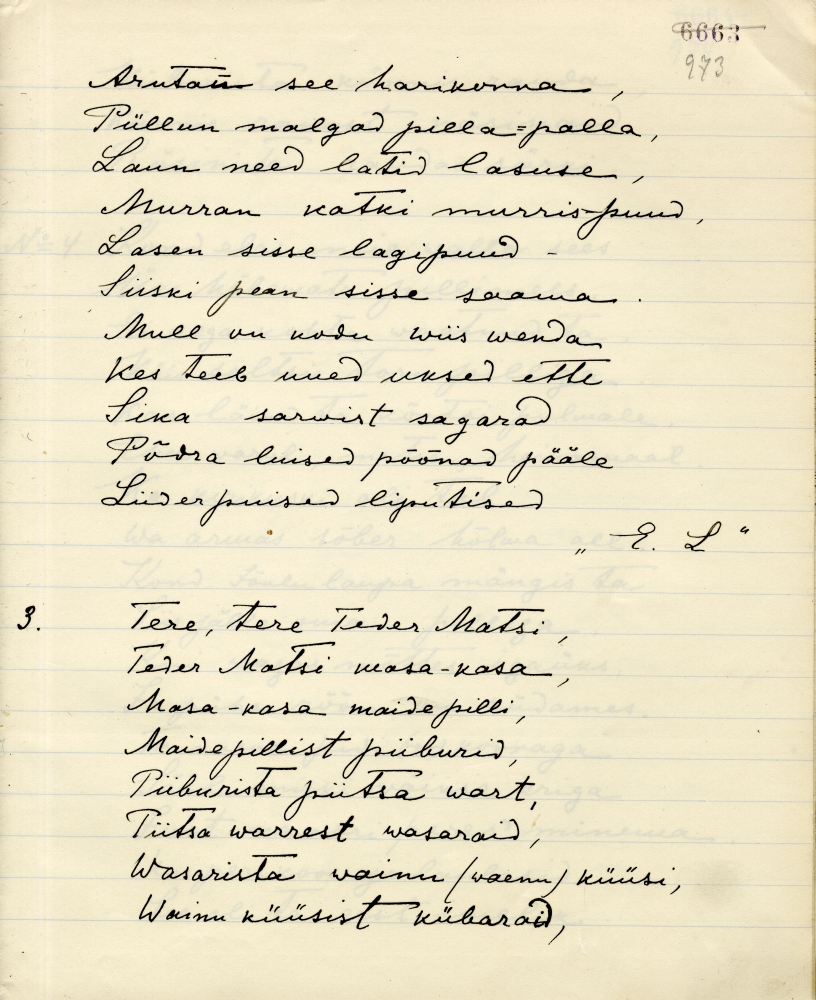 6663
973
Arutan see harikonna,
Püllun malgad pilla=palla,
Laun need latid lasuse,
Murran katki murrispuud,
Lasen sisse lagipuud -
Siiski pean sisse saama.
Mull on kodu wiis wenda
Kes teeb uued uksed ette
Sika sarwist sagarad
Põdra luised põõnad pääle
Liiderpuised liputised
„ E. L "
3.
Tere, tere Teder Matsi,
Teder Matsi masa-kasa,
Masa-kasa maidepilli,
Maidepillist piiburid,
Piiburista piitsa wart,
Piitsa warrest wasaraid,
Wasarista wainu (waenu) küüsi,
Wainu küüsist kübaraid,